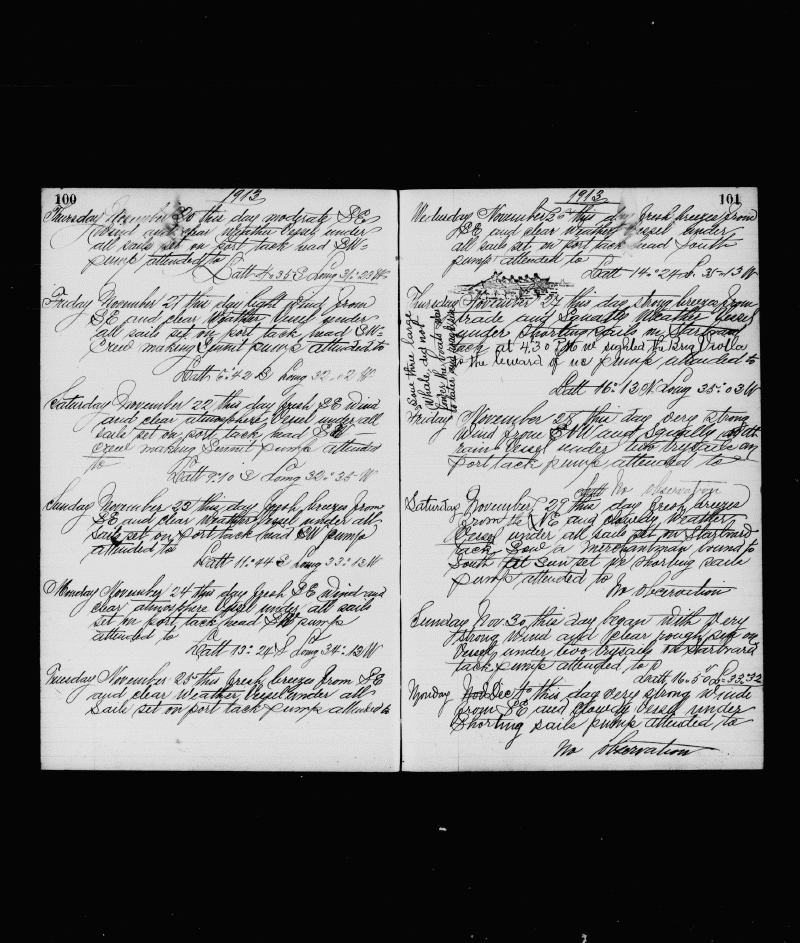 100
1913
Thursday December 20 this day moderate S.E
Wind and clear Weather Vessel under
all sails set on port tack head S.W
pump attended to
Latt 4=35 S Long 31=20 W
Friday November 21 this day light Wind from
S E and clear Weather Vessel under
all sails set on port tack, head S.W
Crew making Sinnit pump attended to
Latt 6=42 S Long 32= 2 W
Saturday November 22 this day fresh S.E Wind
and clear atmosphere Vessel under all
sails set on port tack head S W
Crew making Sinnit pump attended
to
Latt 9=10 S Long 32=35 W
Sunday November 23 this day fresh breezes from
S E and clear Weather Vessel under all
sails set on port tack head S W pump
attended to
Latt 11=44 S Long 33=12 W
Monday November 24 this day fresh S E Wind and
clear atmosphere Vessel under all sails
set on port tack head S W pump
attended to
Latt 13=24 S Long 34=12 W
Tuesday November 25 this fresh breezes from S E
and clear Weather Vessel under all
Sails set on port tack pump attended to
101
1913
Wednesday November 26 this day fresh breezes from
S E and clear Weather Vessel under
all sails set on port tack head South
pump attended to
Latt 14=24 35=13 W
Thursday November 27 this day strong breezes from
trade and Squally Weather Vessel
under Shorting sails on Starboard
tack at 4.30 P M we sighted the Brig Viola
to the leward of us pump attended to
Saw three large
Whale did not
lower her boats was
to late and rough sea
Latt 16=13 Long 35=03 W
Friday November 28 this day very strong
Wind from and Squally with
rain Vessel under two trysails on
port tack pump attended to
Latt No observation
Saturday November 29 this day fresh breezes
from the and cloudy Weather
Vessel under all sails set on Starboard
tack Saw a Merchantman bound to
South at Sun set we Shorting sails
pump attended to
No Observation
Sunday Nov 30 this day began With very
strong Wind and clear rough sea on
Vessel under two trysails on Starboard
tack pump attended to
Latt 16=50 L=33=32
Monday Dec 1 this day very strong Wind
from S E and cloudy Vessel under
Shorting sails pump attended to
No Observation